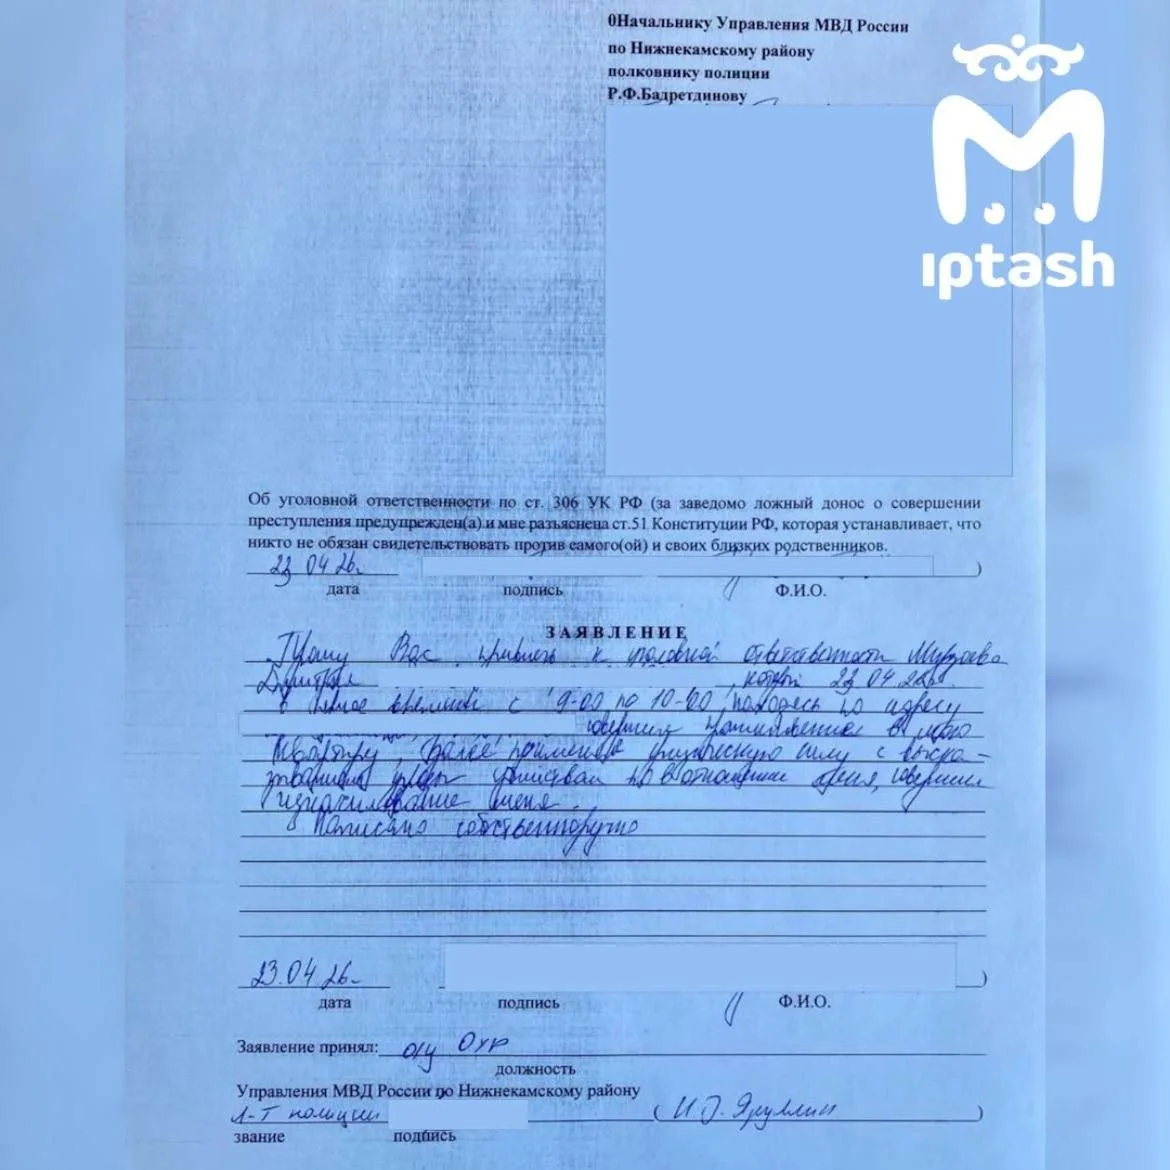 0Начальнику Управления МВД России
по Нижнекамскому району
полковнику полиции
Р.Ф.Бадретдинову
ıptash
Об уголовной ответственности по ст. 306 УК РФ (за заведомо ложный донос о совершении
преступления предупрежден(а) и мне разъяснена ст.51 Конституции РФ, которая устанавливает, что
никто не обязан свидетельствовать против самого(ой) и своих близких родственников.
23 04 26г. )
дата подпись Ф.И.О.
ЗАЯВЛЕНИЕ
Прошу Вас привлечь к уголовной ответственности Мурзаева
Дмитрия , который 23.04.26г.
в период времени с 9-00 по 10-00, находясь по адресу
совершил проникновение в мою
квартиру, далее применив физическую силу с
угрозы убийством в отношении меня, совершил
изнасилование меня.
Написано собственноручно
23.04.26г. )
дата подпись Ф.И.О.
Заявление принял: о/у ОУР
должность
Управления МВД России по Нижнекамскому району
л-т полиции ( И.Э. Яруллин )
звание подпись